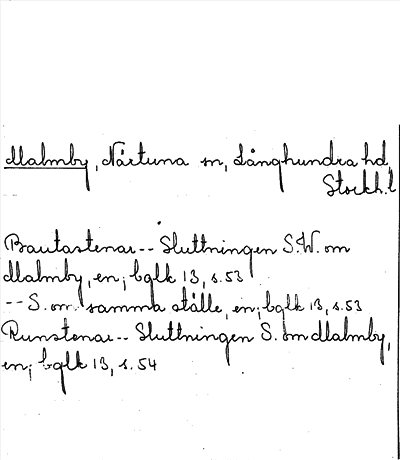 Malmby, Närtuna sn, Långhundra hd,
Stockh. l
Bautastenar -- Sluttningen S.W. om
Malmby, en; bglk 13, s. 53
-- S. om samma ställe, en; bglk 13, s. 53
Runstenar -- Sluttningen S. om Malmby,
en; bglk 13, s. 54